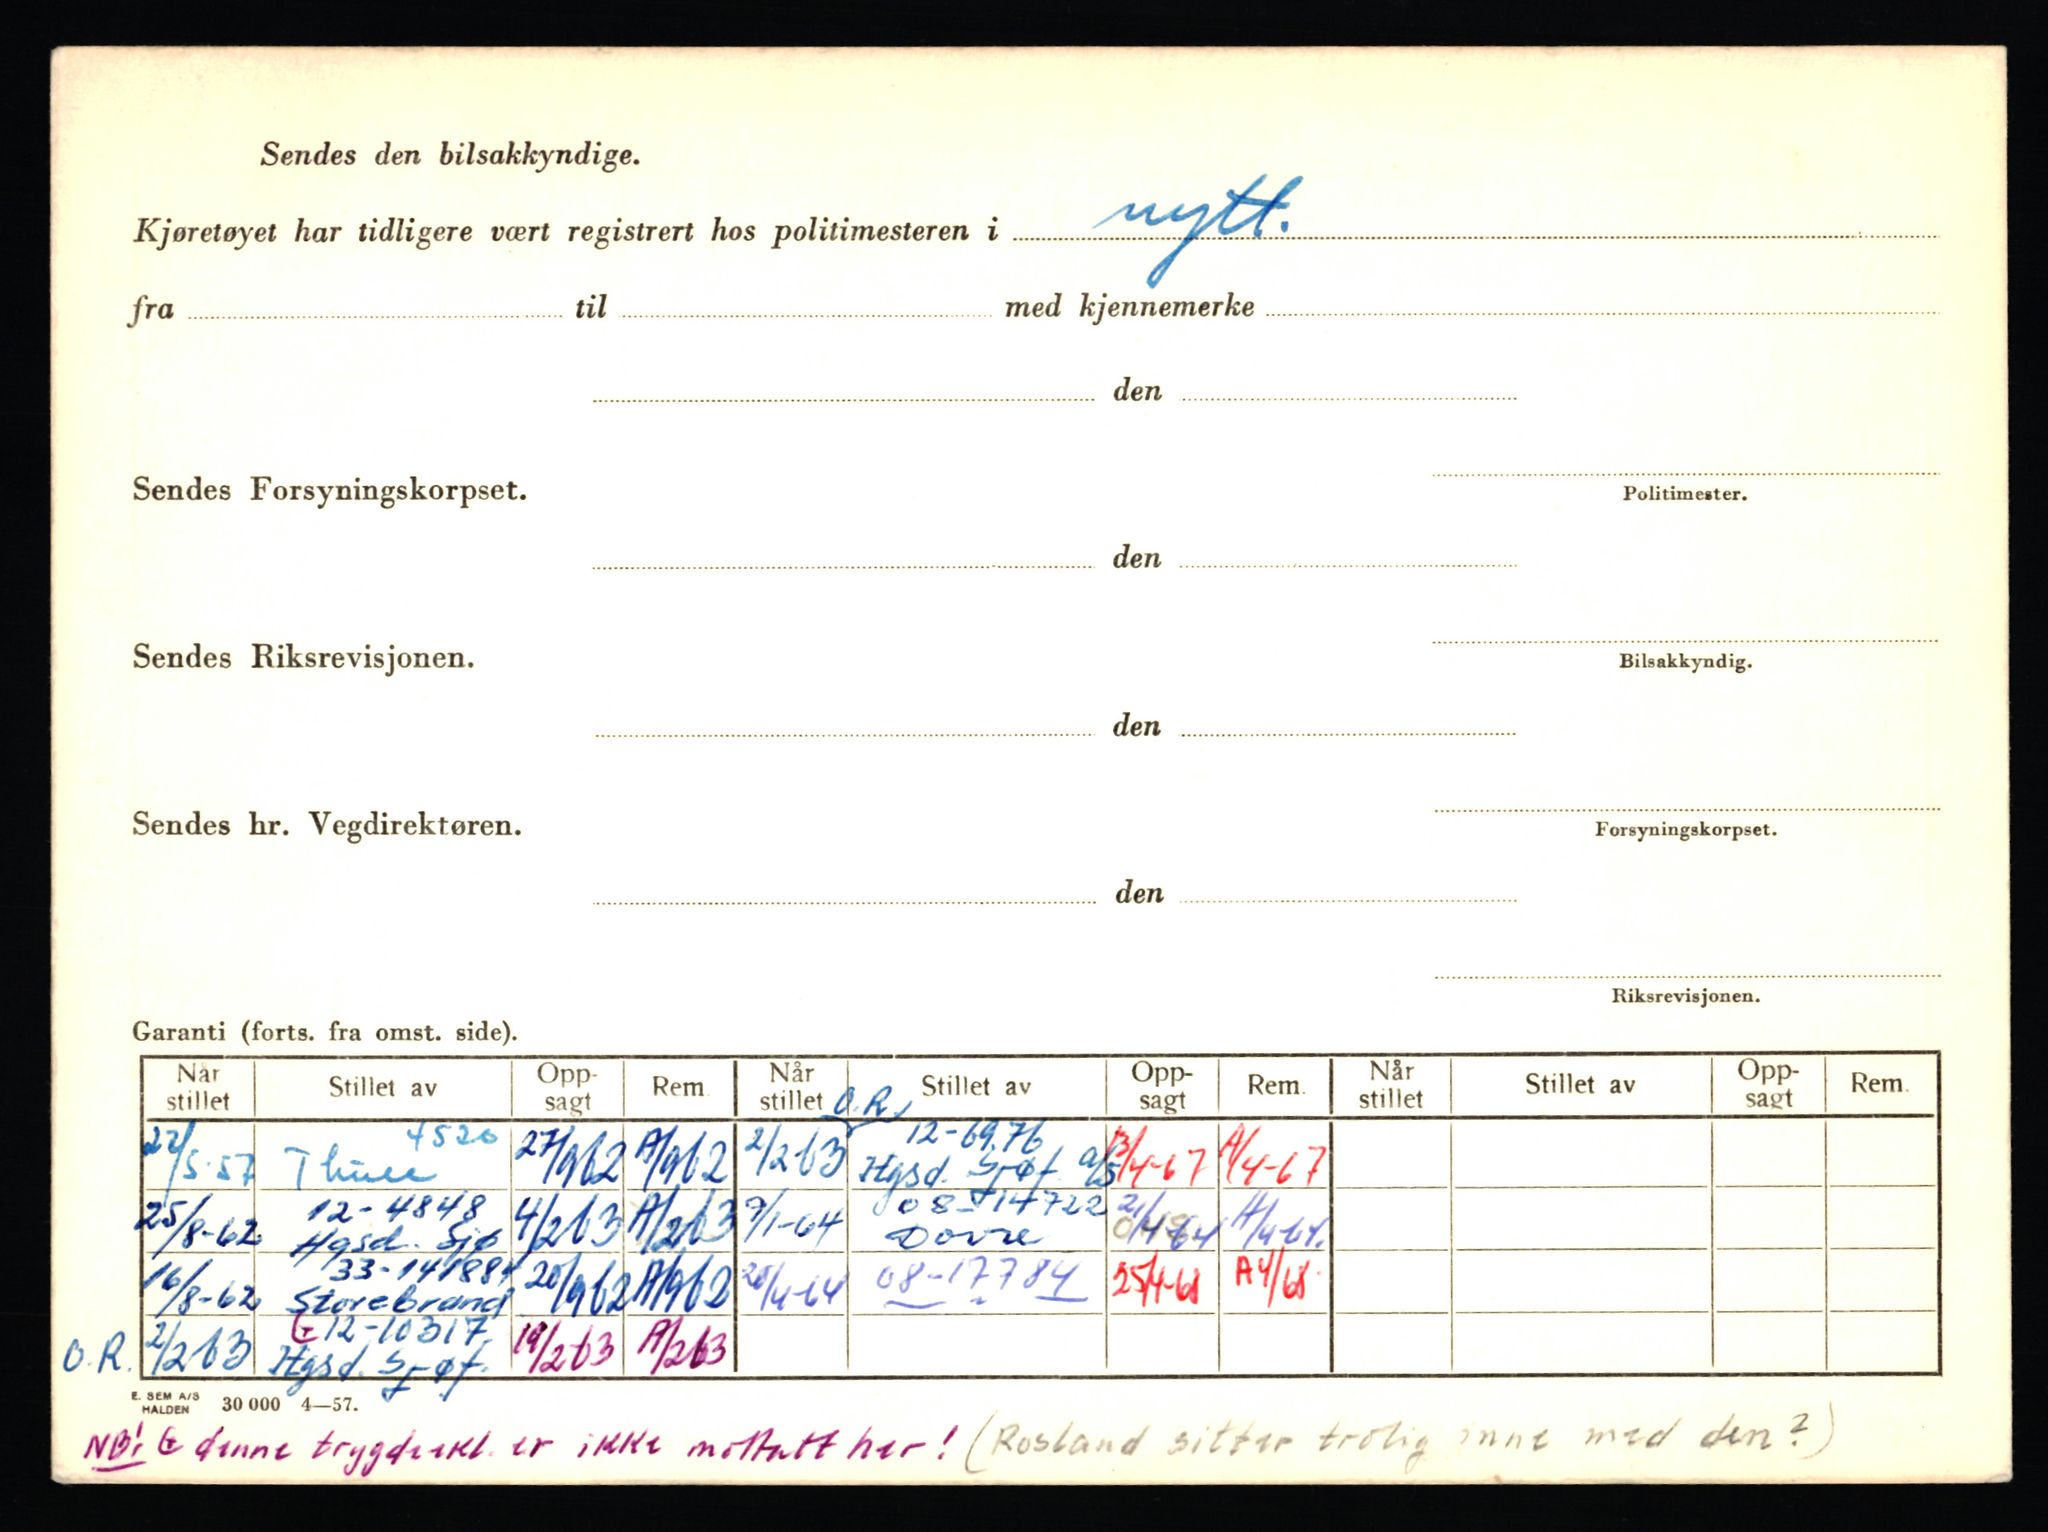 Sendes den bilsakkyndige.
Kjøretøyet har tidligere vært registrert hos politimesteren i nytt.
fra til med kjennemerke
den
Sendes Forsyningskorpset.
Politimester.
den
Sendes Riksrevisjonen.
Bilsakkyndig.
den
Sendes hr. Vegdirektøren.
Forsyningskorpset.
den
Riksrevisjonen.
Garanti (forts. fra omst. side).
Når stillet Stillet av Opp-sagt Rem. Når stillet Stillet av Opp-sagt Rem. Når stillet Stillet av Opp-sagt Rem.
O.R.
4520 12-6976
22/5-57 27/962 A/962 2/2-63 Hgsd. Sjøf. a/s 13/4-67 A/4-67
12-4848 08-14722
25/8-62 Hgsd. Sjø 4/263 A/263 9/1-64 Dovre 21/4-64 A/4-64.
33-141884
16/8-62 Storebrand 20/962 A/962 20/4-64 08-17784 25/4-68 A4/68
12-10317
O.R. 2/263 Hgsd. Sjøf. 19/263 A/263
E. SEM A/S HALDEN 30 000 4—57.
NB! denne trygdeekl. er ikke mottatt her! (Rosland sitter trolig inne med den?)